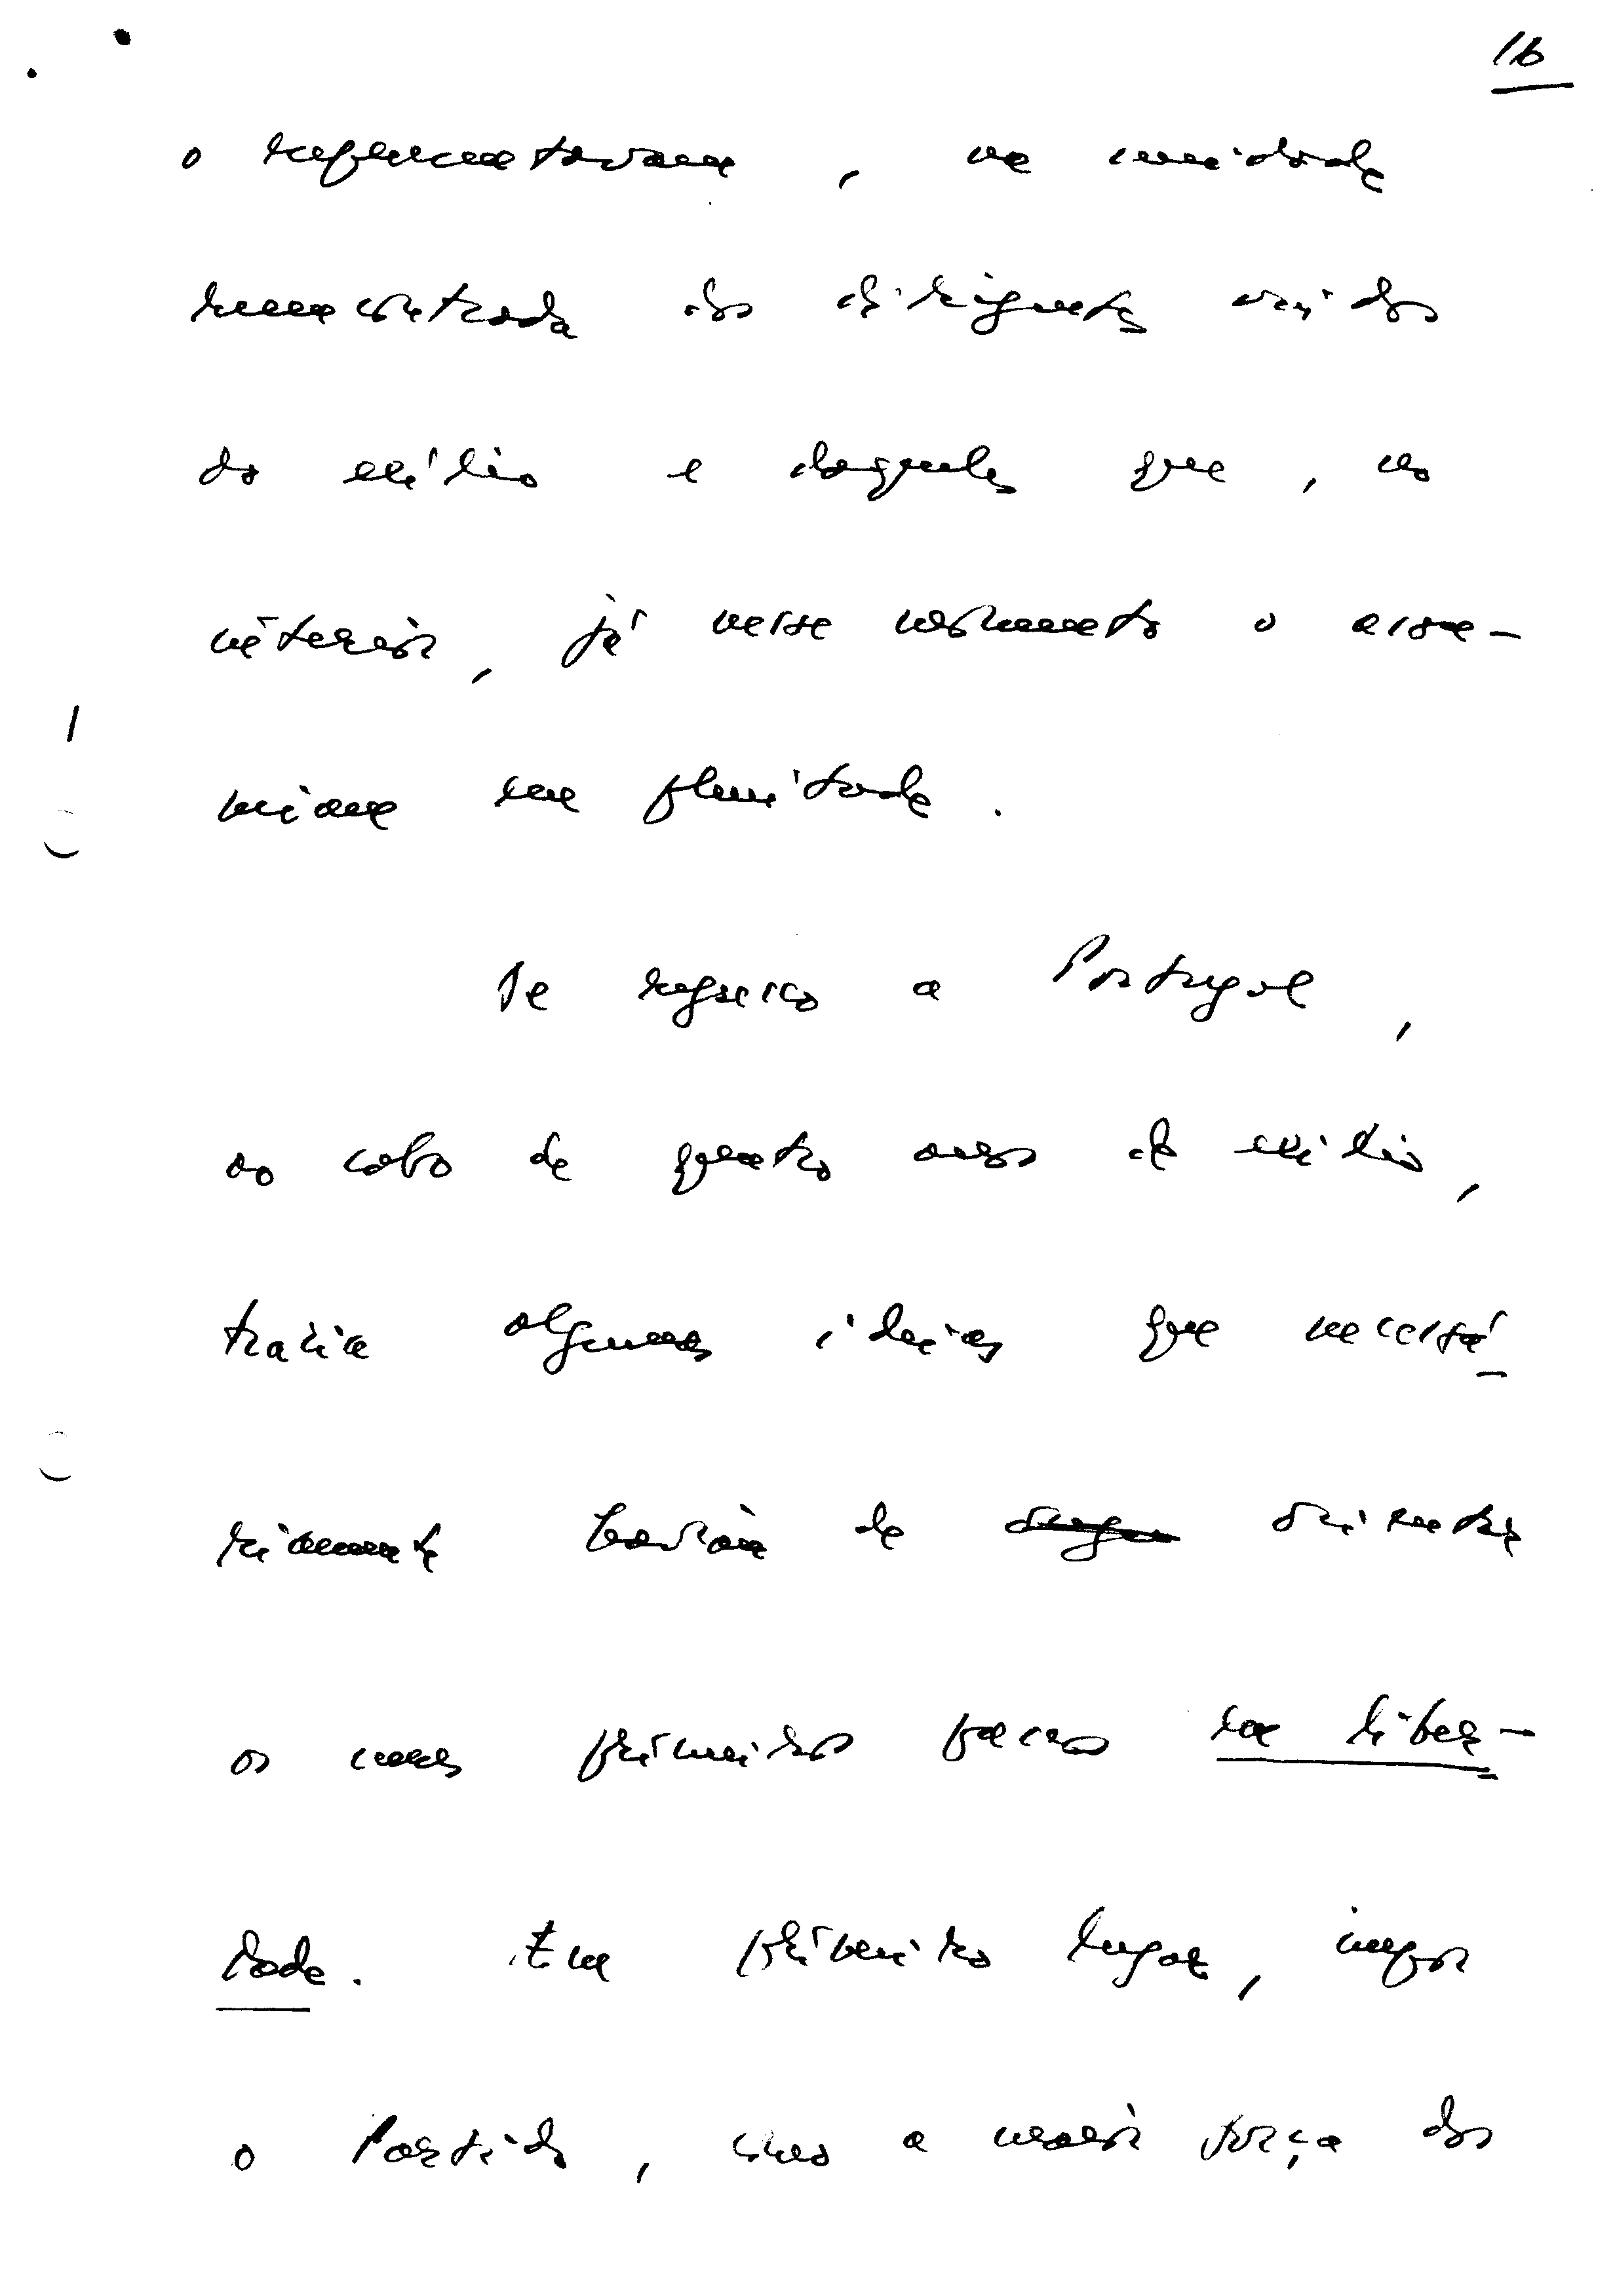 16
o representavam, na unidade
reencontrada dos dirigentes vindos
do exílio e daqueles que, no
interior, já nesse momento o assu-
miam em plenitude.
De regresso a Portugal,
ao cabo de quatro anos de exílio,
trazia algumas ideias que necessá-
riamente haviam de orientar
os meus primeiros passos em liber-
dade. Em primeiro lugar, impor
o Partido, como a maior força dos